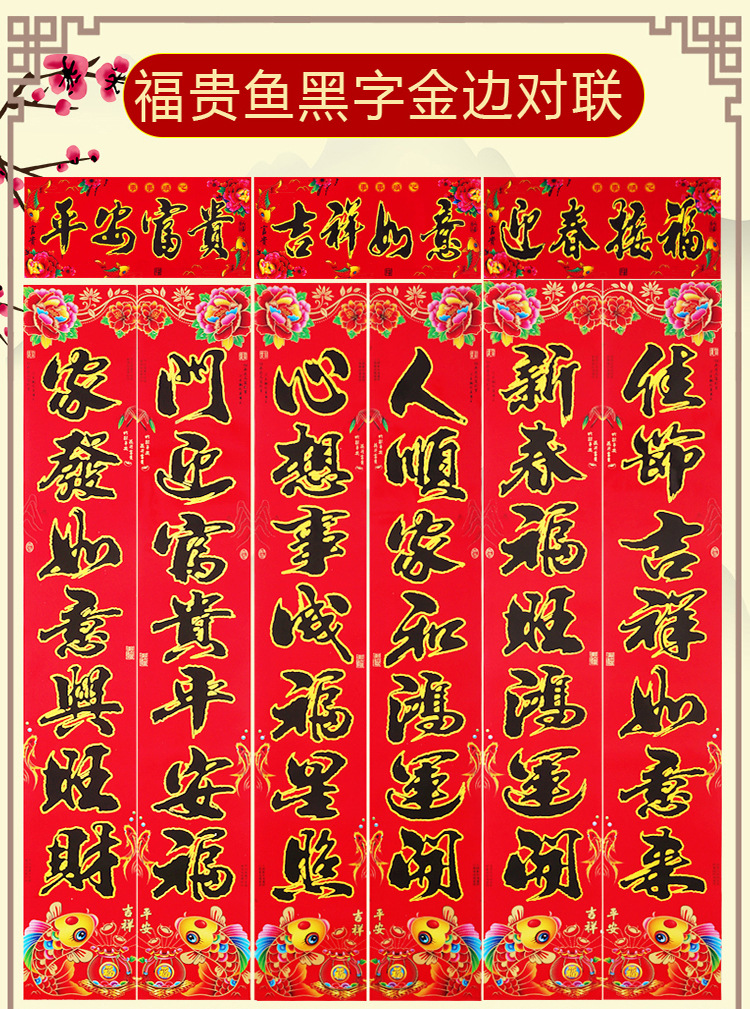 福贵鱼黑字金边对联
平安富貴
吉祥如意
迎春接福
家發如意興旺財
門迎富貴平安福
心想事成福星照
人順家和鴻運開
新春福旺鴻運開
佳節吉祥如意来
吉祥
平安
吉祥
平安
吉祥
平安